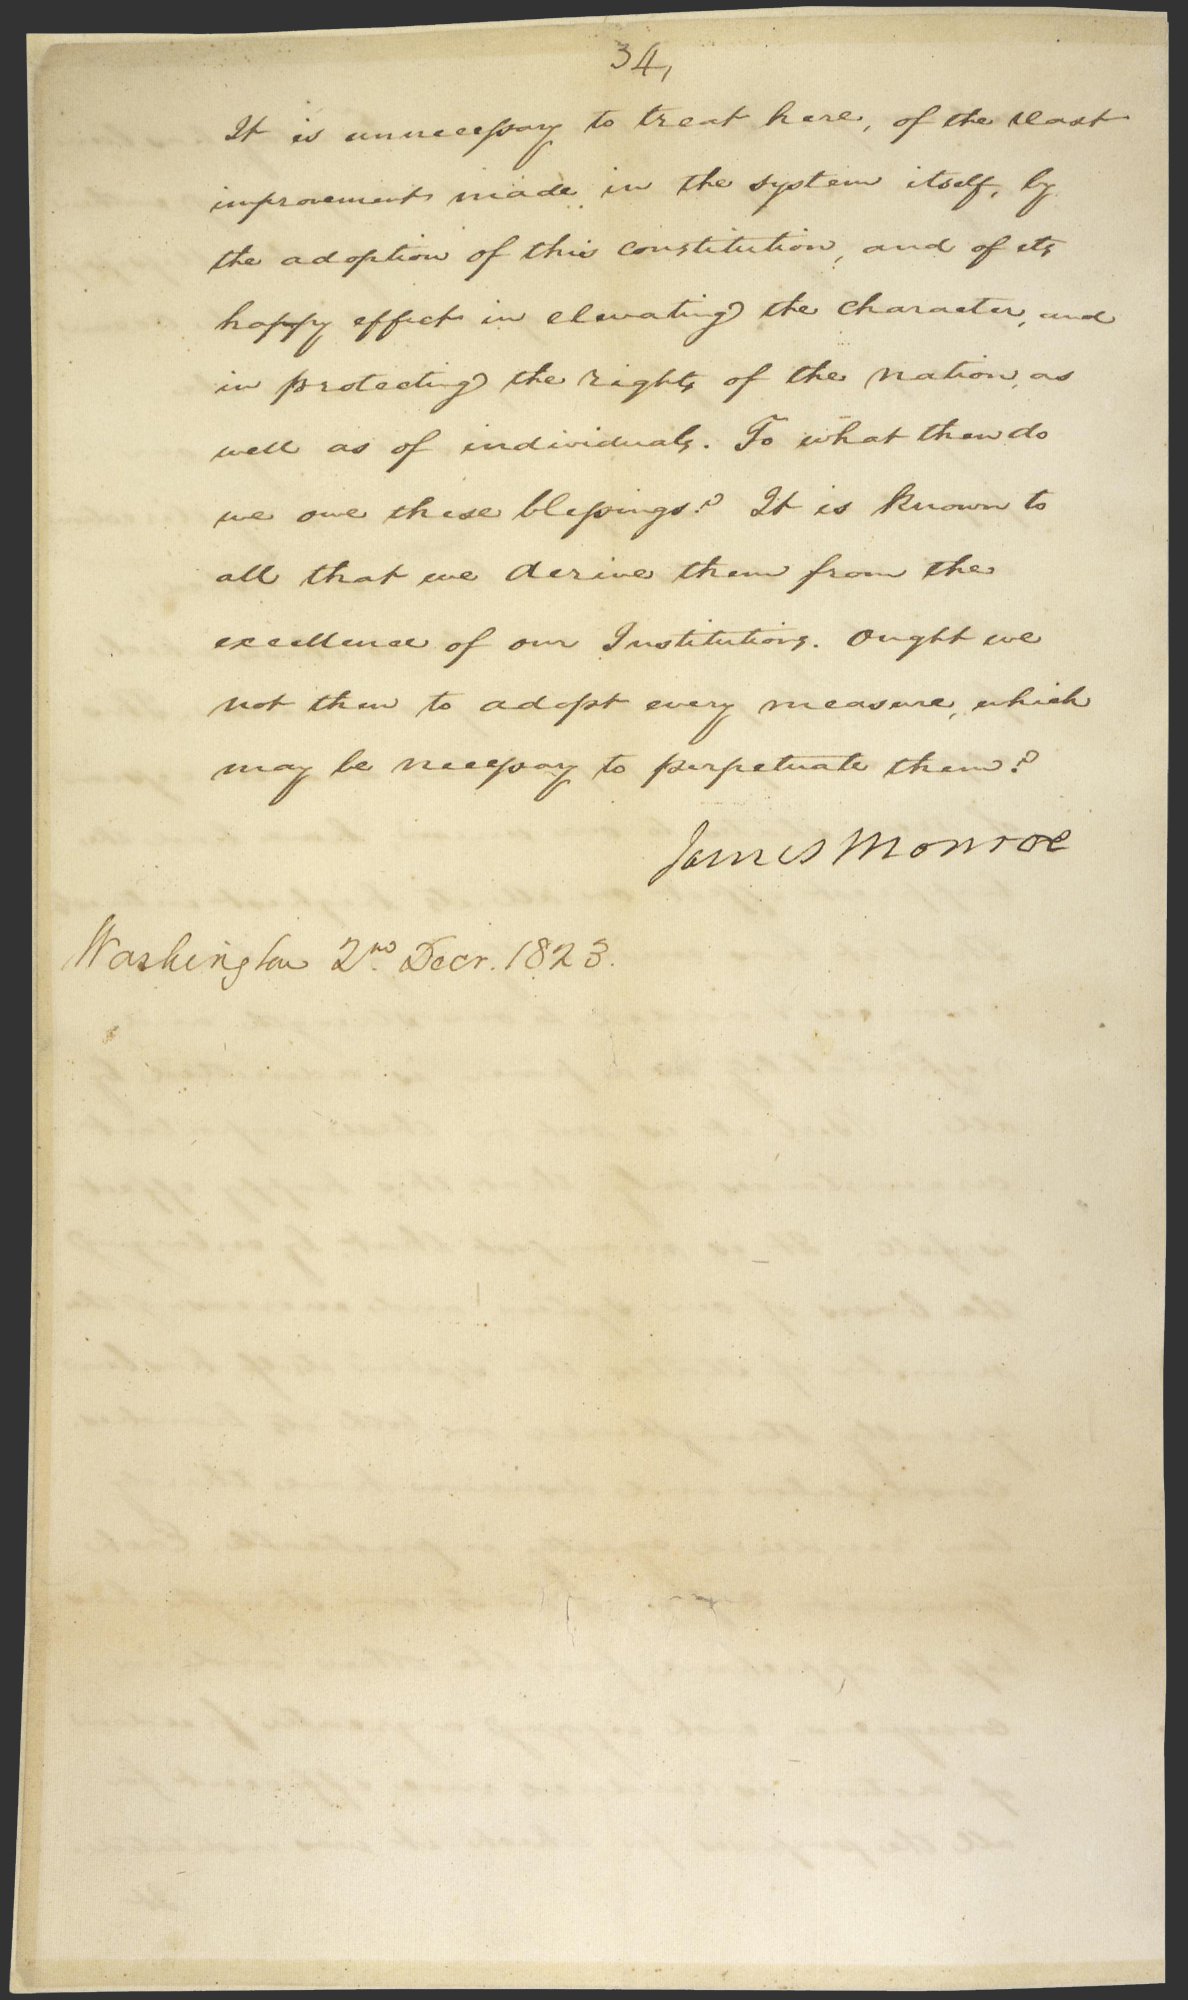 34,
It is unnecessary to treat here, of the vast
improvement made in the system itself, by
the adoption of this constitution, and of its
happy effect in elevating the character, and
in protecting the rights of the nation, as
well as of individuals. To what then do
we owe these blessings? It is known to
all that we derive them from the
excellence of our Institutions. Ought we
not then to adopt every measure, which
may be necessary to perpetuate them?
James Monroe
Washington 2nd Decr. 1823.